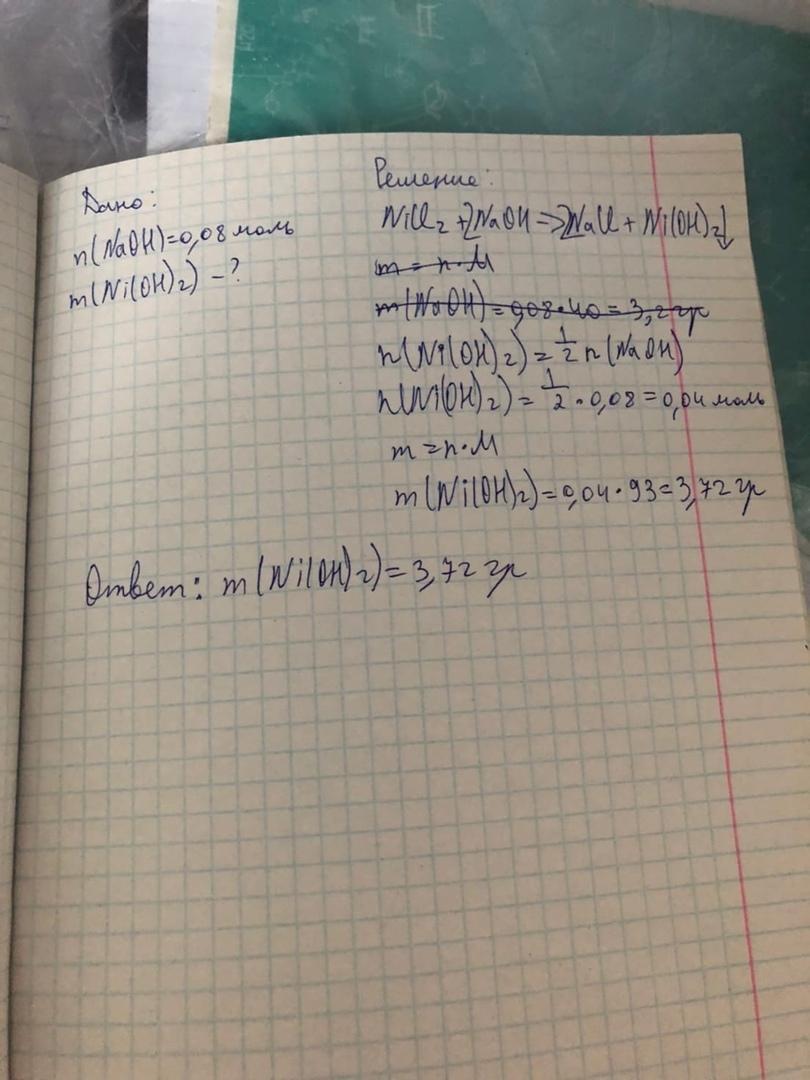 Дано:
n(NaOH)=0,08 моль
m(Ni(OH)2) - ?
Решение:
NiCl2 + 2NaOH => 2NaCl + Ni(OH)2↓
m = n · M
m(NaOH) = 0,08 · 40 = 3,2 гр
n(Ni(OH)2) = 1/2 n(NaOH)
n(Ni(OH)2) = 1/2 · 0,08 = 0,04 моль
m = n · M
m(Ni(OH)2) = 0,04 · 93 = 3,72 гр
Ответ: m(Ni(OH)2) = 3,72 гр